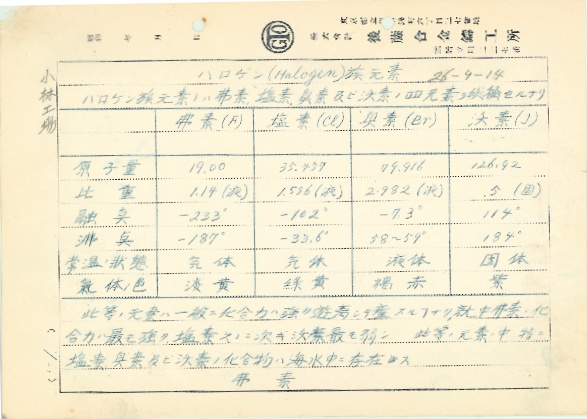 昭和 年 月 日
GTO
株式会社 後藤合金鋳工所
小林工場
ハロゲン(Halogen)族元素 26-9-14
ハロゲン族元素ハ弗素、塩素、臭素及ビ沃素ノ四元素ヲ総称セルナリ
弗素(F) 塩素(Cl) 臭素(Br) 沃素(J)
原子量 19.00 35.457 79.916 126.92
比重 1.14(液) 1.556(液) 2.982(液) 5(固)
融点 -233° -102° -7.3° 114°
沸点 -187° -33.6° 58~59° 184°
常温ノ状態 気体 気体 液体 固体
気体ノ色 淡黄 緑黄 褐赤 紫
此等ノ元素ハ一般ニ化合力ハ強ク遊局シテ産スルコトナク就中弗素ノ化
合力ハ最モ強ク塩素之ニ次ギ沃素最モ弱シ 此等ノ元素ノ中特ニ
塩素臭素及ビ沃素ノ化合物ハ海水中ニ存在ス
弗素